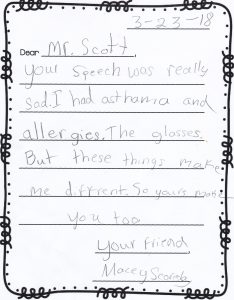 3-23-18
Dear Mr. Scott,
your speech was really
sad. I had asthama and
allergies. The glasses.
But these things make
me diffrent. So yours make
you too
your friend
Macey